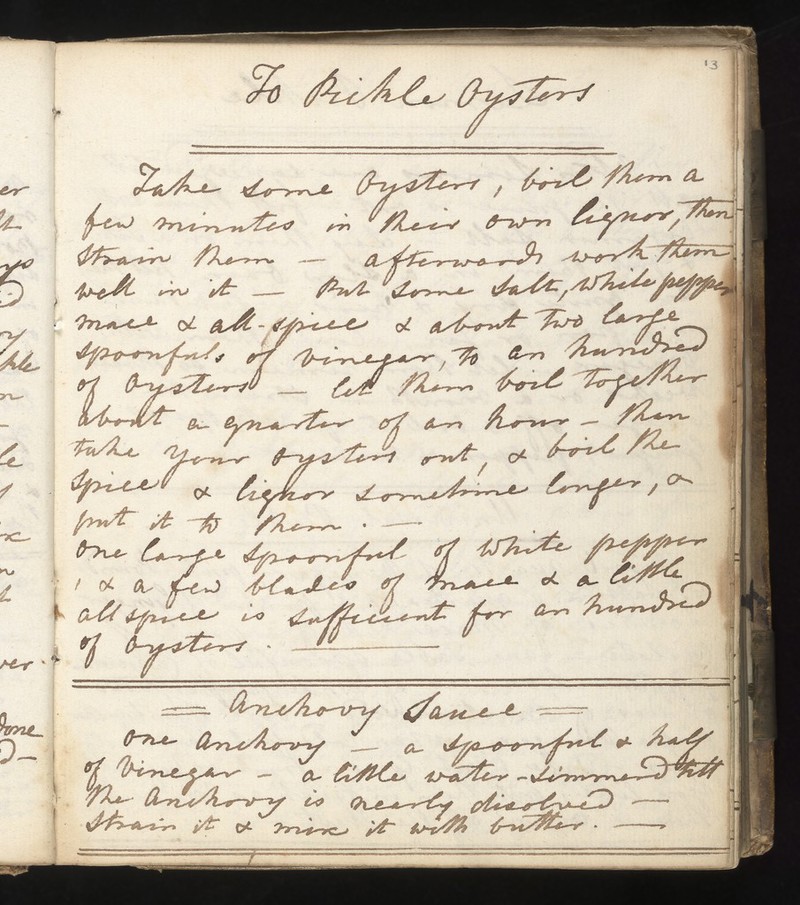 13
To Pickle Oysters
Take some Oysters, boil them a
few minutes in their own liquor, then
strain them — afterwards work them
well in it — Put some Salt, White pepper
mace & all-spice & about two large
spoonfuls of vinegar, to an hundred
of Oysters — let them boil together
about a quarter of an hour — then
take your oysters out, & boil the
spice & liquor sometime longer, &
put it to them. —
One large spoonful of White pepper
, & a few blades of mace & a little
allspice is sufficient for an hundred
of Oysters. —
= Anchovy Sauce =
One Anchovy — a spoonful & half
of Vinegar — a little water - simmerd till
the Anchovy is nearly disolved —
Strain it & mix it with butter. —
er
done